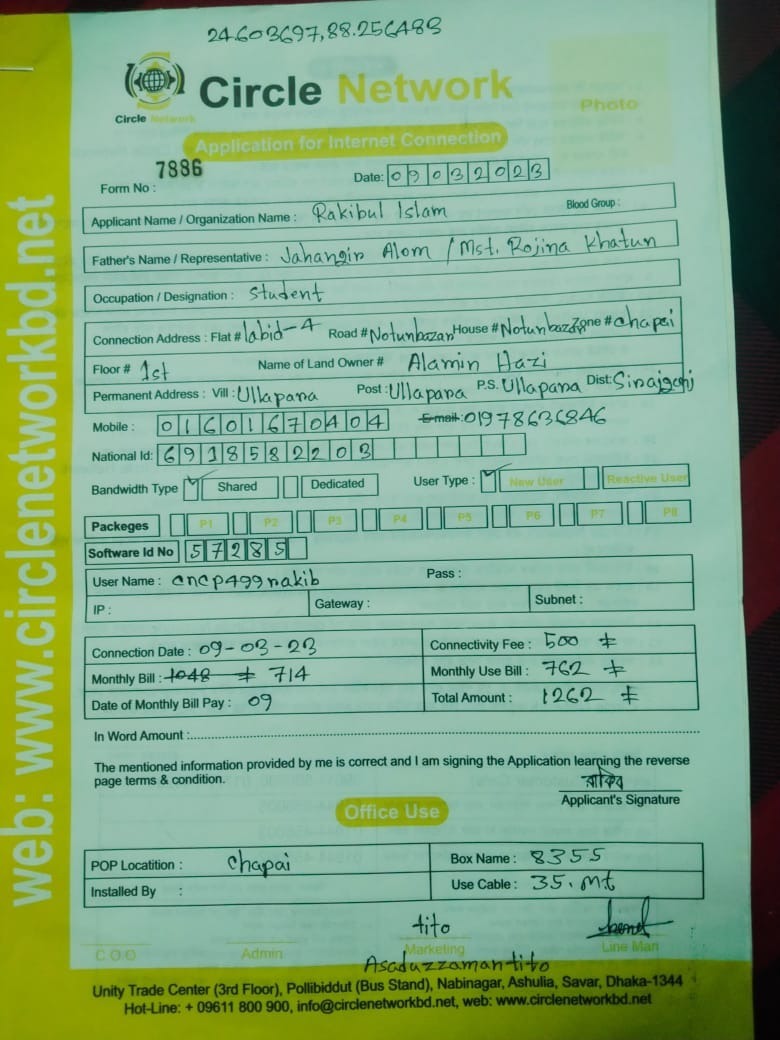 24.603697,88.256489
Circle Network
Circle Network
Photo
Application for Internet Connection
Form No : 7886
Date: 09032023
Applicant Name / Organization Name : Rakibul Islam Blood Group :
Father's Name / Representative : Jahangir Alom / Mst. Rojina Khatun
Occupation / Designation : Student
Connection Address : Flat # labid-4 Road # Notunbazar House # Notunbazar Zone # Chapai
Floor # 1st Name of Land Owner # Alamin Hazi
Permanent Address : Vill : Ullapara Post : Ullapara P.S. Ullapara Dist: Sirajgonj
Mobile : 01601670404 Email: 01978636846
National Id: 6918582203
Bandwidth Type Shared Dedicated User Type : New User Reactive User
Packeges P1 P2 P3 P4 P5 P6 P7 P8
Software Id No 57285
User Name : cncp499rakib Pass :
IP : Gateway : Subnet :
Connection Date : 09-03-23 Connectivity Fee : 500 ৳
Monthly Bill : 1048 ৳ 714 Monthly Use Bill : 762 ৳
Date of Monthly Bill Pay : 09 Total Amount : 1262 ৳
In Word Amount :
The mentioned information provided by me is correct and I am signing the Application learning the reverse
page terms & condition.
রাকিব
Applicant's Signature
Office Use
POP Locatition : Chapai Box Name : 8355
Installed By : Use Cable : 35.mt
tito
C.O.O Admin Marketing Line Man
Asaduzzamantito
Unity Trade Center (3rd Floor), Pollibiddut (Bus Stand), Nabinagar, Ashulia, Savar, Dhaka-1344
Hot-Line: + 09611 800 900, info@circlenetworkbd.net, web: www.circlenetworkbd.net
web: www.circlenetworkbd.net